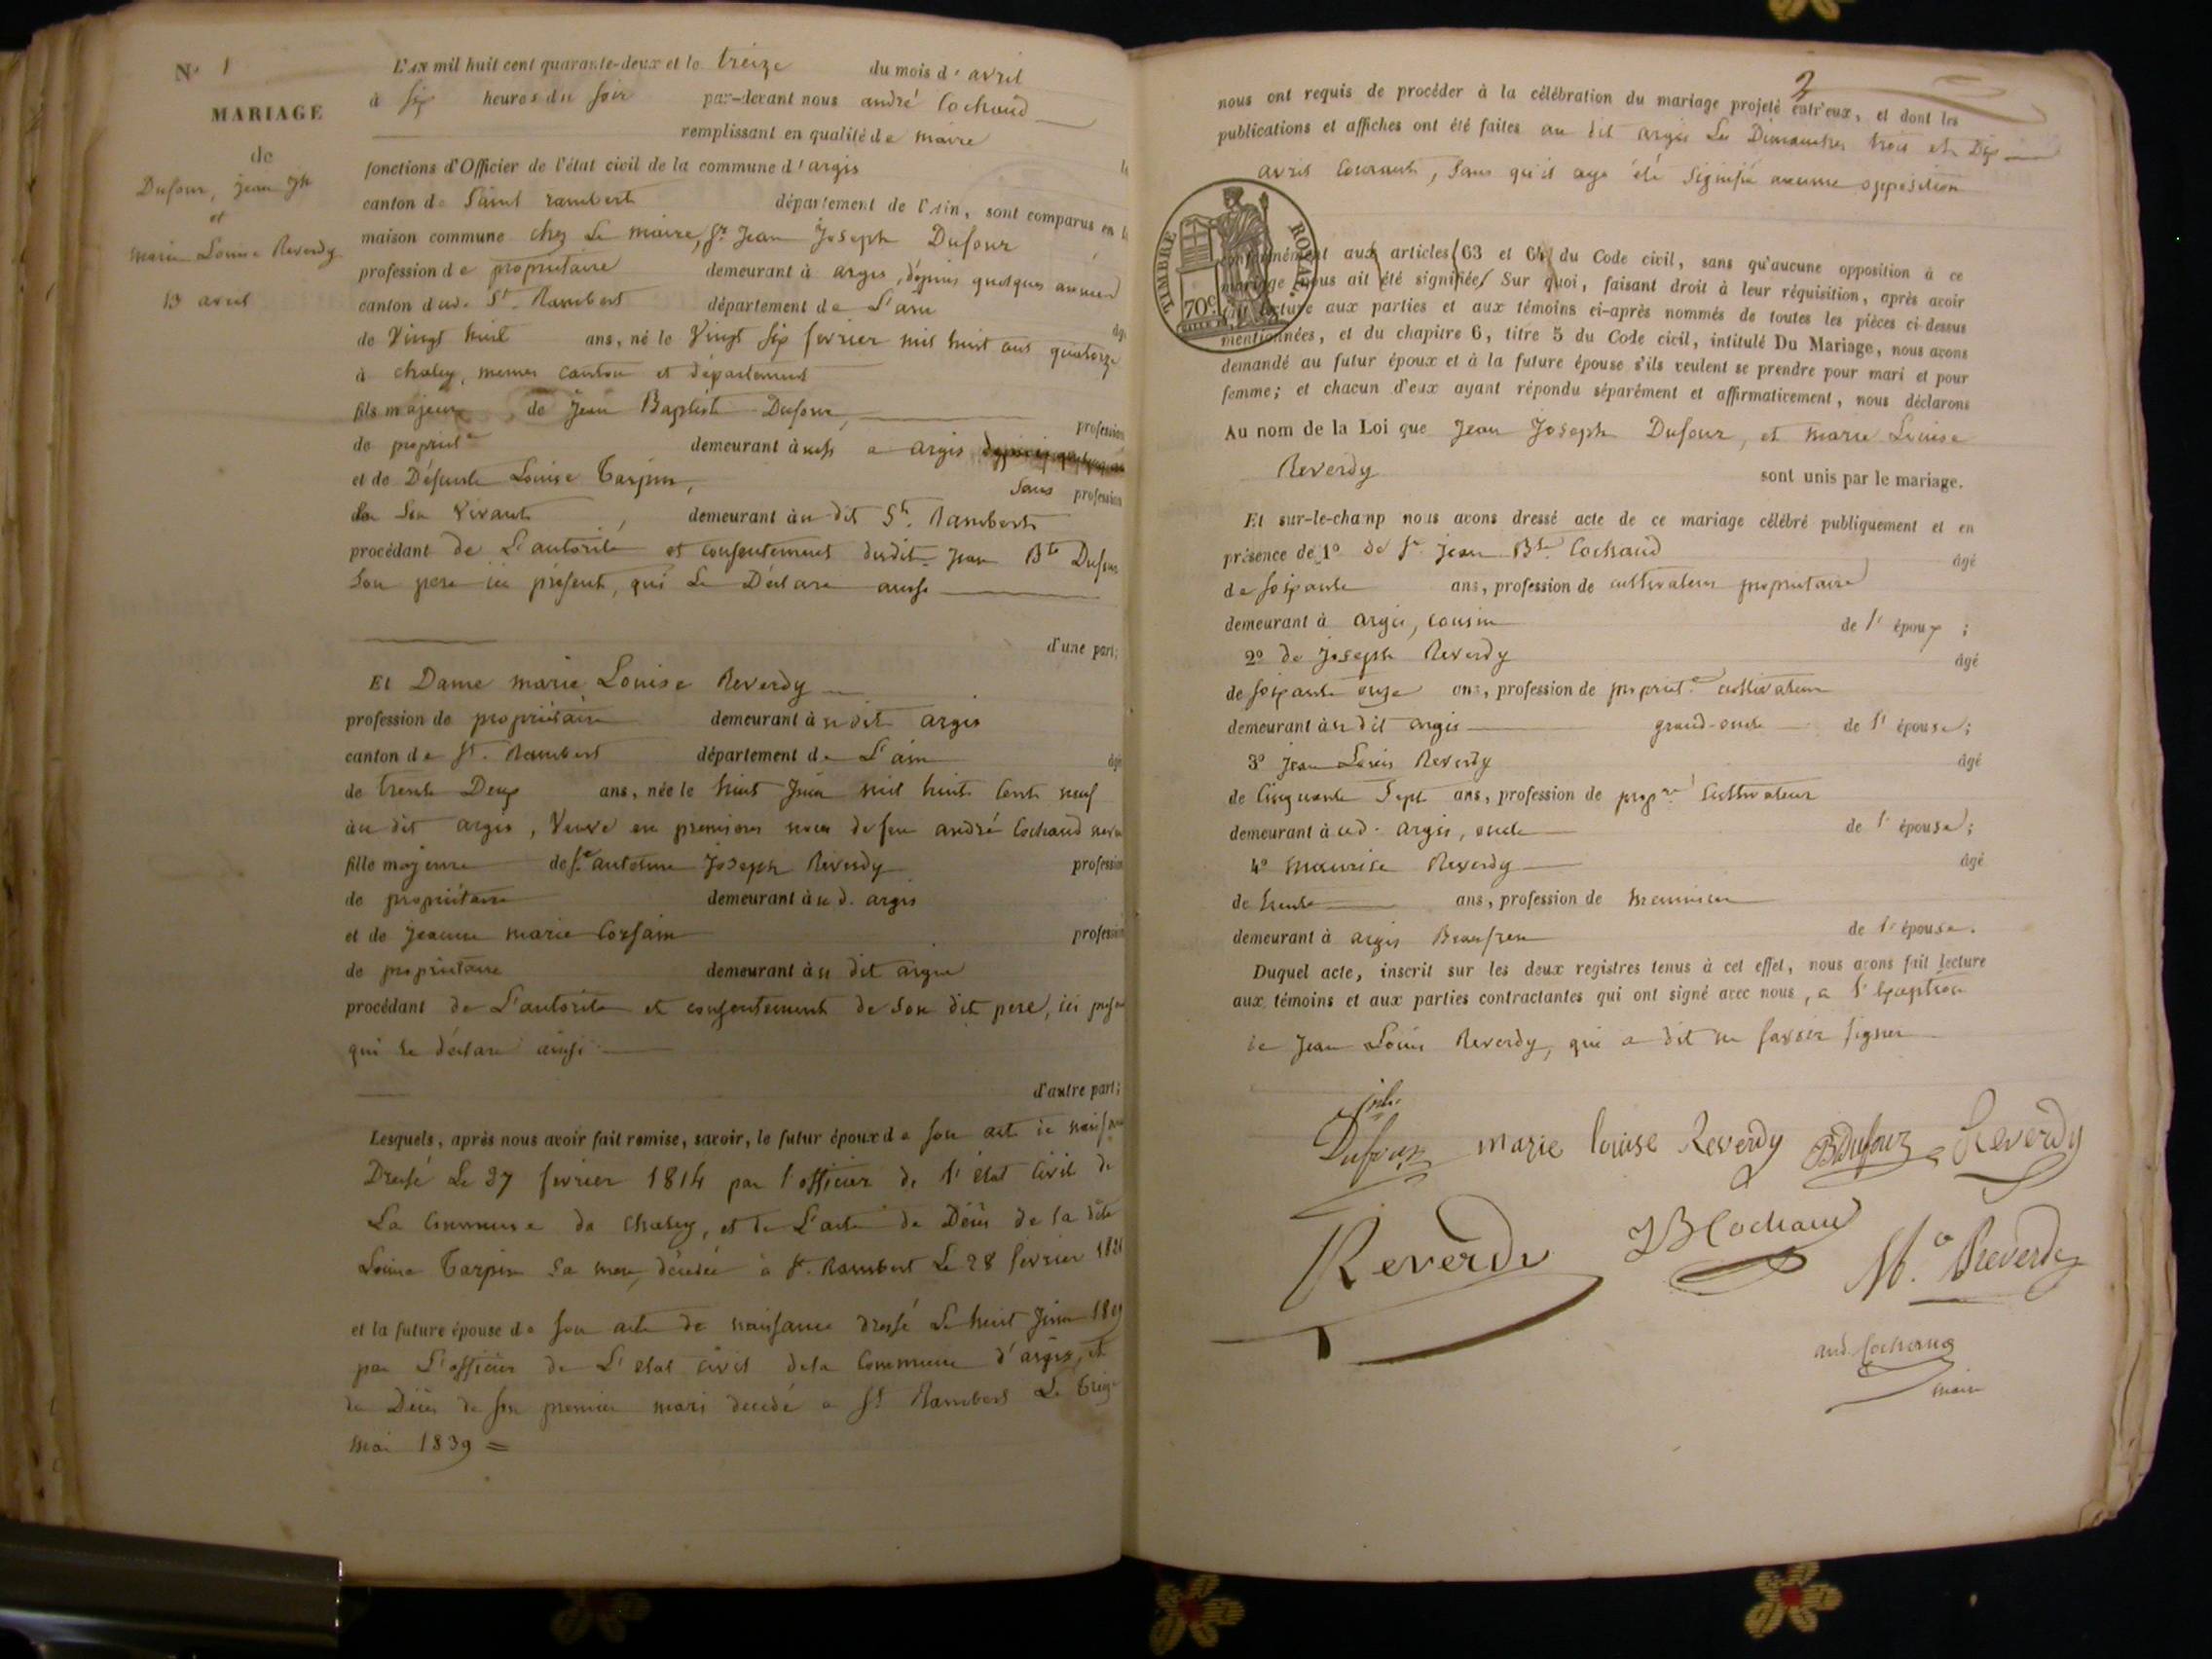 N° 1
MARIAGE
de
Dufour, jean Jh
et
marie Louise Reverdy
13 avril
L'AN mil huit cent quarante-deux et le treize du mois d'avril
à six heures du soir par-devant nous andré Cochaud
remplissant en qualité de maire
fonctions d'Officier de l'état civil de la commune d'argis
canton de Saint rambert département de l'Ain, sont comparus en
maison commune chez Le maire, Sr. Jean Joseph Dufour
profession de propriétaire demeurant à argis, depuis quelques années
canton dud. St. Rambert département de L'ain
de Vingt huit ans, né le Vingt six fevrier mil huit cent quatorze
à chaley, memes canton et département
fils majeur de Jean Baptiste Dufour, profession
de propriet.re demeurant à aussi a argis
et de Défunte Louise Tarpin, Sans profession
de Son Vivant demeurant au dit St. Rambert
procédant de L'autorité et consentement dudit Jean Bte Dufour
Son pere ici présent, qui Le Déclare aussi
d'une part;
Et Dame marie Louise Reverdy
profession de propriétaire demeurant à u dit argis
canton de St. Rambert département de L'ain âgé
de trente Deux ans, née le huit Juin mil huit Cent neuf
au dit argis, Veuve en premieres noces de feu andré Cochaud
fille majeure de Sr. antoine Joseph Reverdy profession
de propriétaire demeurant à u d. argis
et de jeanne marie Corsain profession
de propriétaire demeurant à u dit argis
procédant de L'autorité et consentement de Son dit pere, ici présent
qui Le déclare ainsi
d'autre part;
Lesquels, après nous avoir fait remise, savoir, le futur époux de son acte de naissance
Dressé Le 27 fevrier 1814 par l'officier de l'état Civil de
La Commune de Chaley, et de L'acte de Décès de la dite
Louise Tarpin Sa mere, décédée à St. Rambert Le 28 fevrier
et la future épouse de son acte de naissance dressé Le huit Juin 1809
par L'officier de L'etat civil dela Commune d'argis, et
de Décès de son premier mari decedé a St Rambert Le treize
mai 1839 =
2
nous ont requis de procéder à la célébration du mariage projeté entr'eux, et dont les
publications et affiches ont été faites au dit argis Les Dimanches trois et Dix
avril Courant, Sans qu'il aye été Signifié aucune opposition
TIMBRE ROYAL.
70 c
conformément aux articles (63 et 64) du Code civil, sans qu'aucune opposition à ce
mariage nous ait été signifiée. Sur quoi, faisant droit à leur réquisition, après avoir
lecture aux parties et aux témoins ci-après nommés de toutes les pièces ci-dessus
mentionnées, et du chapitre 6, titre 5 du Code civil, intitulé Du Mariage, nous avons
demandé au futur époux et à la future épouse s'ils veulent se prendre pour mari et pour
femme; et chacun d'eux ayant répondu séparément et affirmativement, nous déclarons
Au nom de la Loi que Jean Joseph Dufour, et marie Louise
Reverdy sont unis par le mariage.
Et sur-le-champ nous avons dressé acte de ce mariage célébré publiquement et en
présence de 1° de Sr. jean Bte. Cochaud âgé
de soixante ans, profession de cultivateur propriétaire
demeurant à argis, cousin de l'époux;
2° de Joseph Reverdy âgé
de soixante onze ans, profession de propriet.re cultivateur
demeurant à u dit argis grand-oncle de l'épouse;
3° Jean Louis Reverdy âgé
de Cinquante Sept ans, profession de prop.re Cultivateur
demeurant à ud. argis, oncle de l'épouse;
4° maurise Reverdy âgé
de trente ans, profession de meunier
demeurant à argis Beaufrere de l'épouse.
Duquel acte, inscrit sur les deux registres tenus à cet effet, nous avons fait lecture
aux témoins et aux parties contractantes qui ont signé avec nous, a l'exception
de Jean Louis Reverdy, qui a dit ne savoir signer
Dufour marie louise Reverdy BDufour Reverdy
Reverdy JB Cochaud M.e Reverdy
and. Cochaud
maire